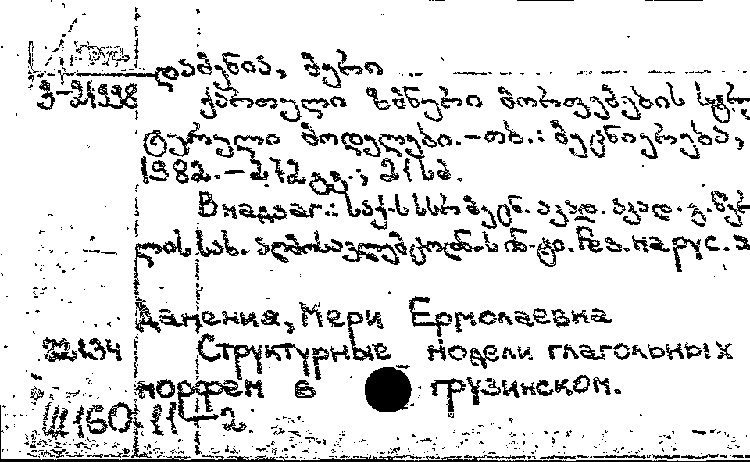 დამენია, მერი
3-21998 ქართული ზმნური მორფემების სტრუ
ტურული მოდელები.-თბ.: მეცნიერება,
1982.-272 გვ.; 21 სმ.
В надзаг.: საქ.სსრ მეცნ. აკად. აკად. გ. წერ
ლის სახ. აღმოსავლეთმცოდნ. ს ინ-ტი. Рез. на рус. я
Данения, Мери Ермолаевна
22134 Структурные модели глагольных
морфем в грузинском.
Ш160.11-2